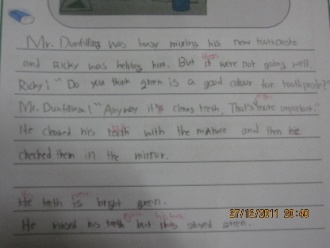 Mr. Dunfilling was busy mixing his new toothpaste
and Ricky was helping him. But it were not going well.
Ricky: "Do you think green is a good colour for toothpaste?"
Mr. Dunfilling: "Anyway it's clean, fresh, That's more important."
He cleaned his teeth with the mixture and then he
checked them in the mirror.
His teeth is bright green.
He rinsed his teeth but this stayed green.
27/12/2011 20:46